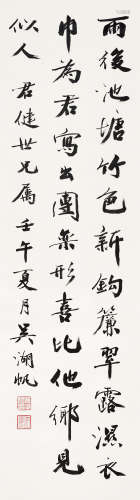 雨後池塘竹色新鈎簾翠露濕衣
巾為君寫出團欒形喜比他鄉見
似人 君健世兄屬 壬午夏月吳湖帆